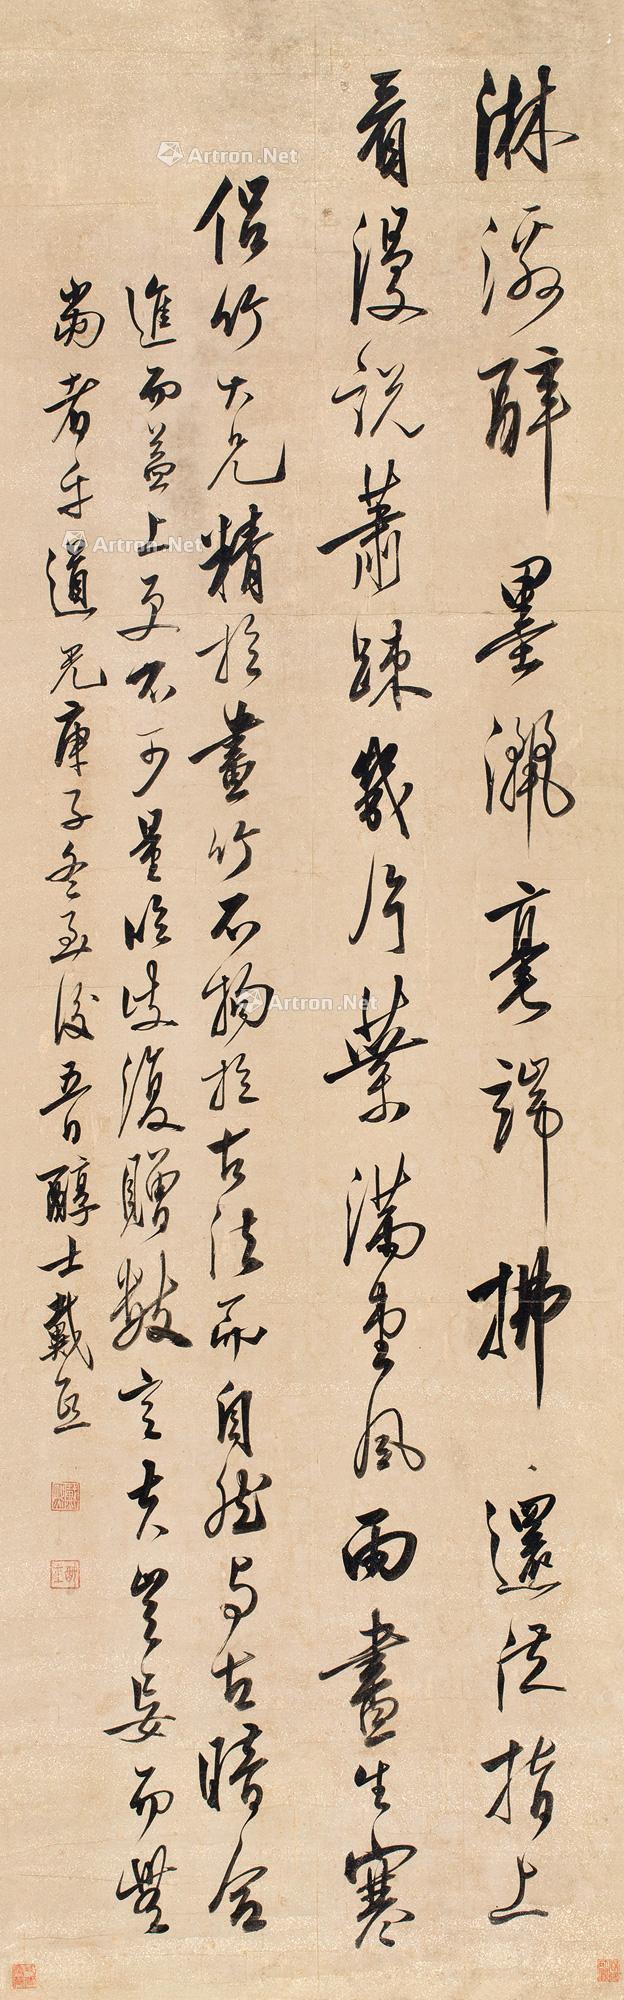 淋漓醉墨濕毫端拂還從指上
看漫説蕭疎幾片葉滿堂風雨畫生寒
侣竹大兄精於畫竹不拘於古法而自然与古暗合
進而益上更不可量臨歧復贈數言夫豈妄而無
當者乎道光庚子冬至後五日醇士戴熙
Artron.Net
Artron.Net
Artron.Net